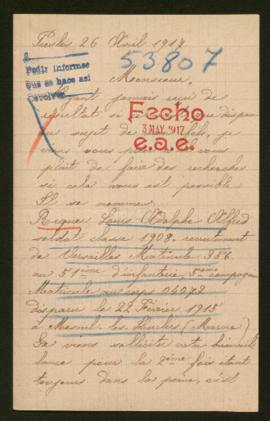 Presles 26 Avril 1917
53807
Pedir informes
que se hace asi
devolver
Monsieur.
Ayant jamais reçu de
Fecho
3 MAY. 1917
e.a.e.
au sujet de
plait de faire des recherches
si cela vous est possible
Il se nomme
Riquer Louis Adolphe Alfred
soldat classe 1908. recrutement
de Versailles Matricule 956
au 51ème d'infanterie, 5ème compagnie
Matricule au corps 04072
disparu le 22 Février 1915
à Mesnil-les-Hurlus (Marne)
Ga viens sollicité cette
pour la 2ème fois étant
toujours dans la peine, c'est